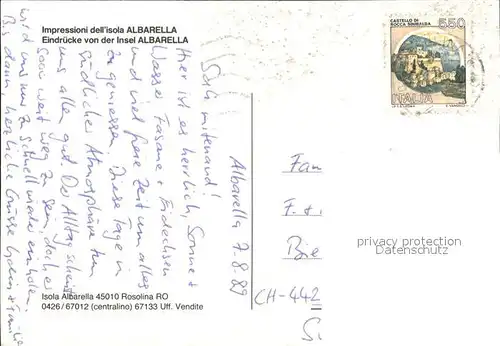 Impressioni dell'isola ALBARELLA
Eindrücke von der Insel ALBARELLA
CASTELLO DI
ROCCA SINIBALDA
550
ITALIA
Albarella 7.8.89
Sali mitenand!
Hier ist es herrlich, Sonne +
Wasser Fasane + Eidechsen
und viel freie Zeit um alles
zu geniessen. Diese Tage in
südlicher Atmosphäre tun
uns allen gut. Der Alltag scheint
so weit weg zu sein, doch er
wird uns nur zu schnell wieder einholen.
Bis dann, herzliche Grüsse + Familie
Fam
F. +
Bie
CH-442
privacy protection
watermark
Isola Albarella 45010 Rosolina RO
0426/67012 (centralino) 67133 Uff. Vendite